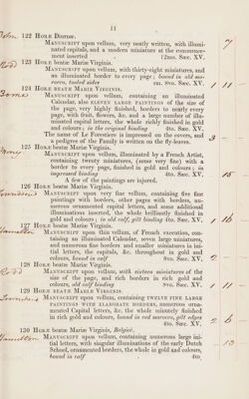 11
122 HORÆ DIURNÆ.
MANUSCRIPT upon vellum, very neatly written, with illumi-
nated capitals, and a modern miniature at the commence-
ment inserted 12mo. SÆC. XV.
7
123 HORÆ beatæ Mariæ Virginis.
MANUSCRIPT upon vellum, with thirty-eight miniatures, and
an illuminated border to every page; bound in old mo-
rocco, tooled sides SÆC. XV.
1 11
124 HORÆ BEATÆ MARIÆ VIRGINIS.
MANUSCRIPT upon vellum, containing an illuminated
Calendar, also ELEVEN LARGE PAINTINGS of the size of
the page, very highly finished, borders to nearly every
page, with fruit, flowers, &c. and a large number of illu-
minated capital letters, the whole richly finished in gold
and colours; in the original binding 4to. SÆC. XV.
The name of Le Forestier is impressed on the covers, and
a pedigree of the Family is written on the fly-leaves.
3
125 HORÆ beatæ Mariæ Virginis.
MANUSCRIPT upon vellum, illuminated by a French Artist,
containing twenty miniatures, (some very fine) with a
border to every page, finished in gold and colours; in
impressed binding 8vo. SÆC. XV.
A few of the paintings are injured.
15
126 HORÆ beatæ Mariæ Virginis.
MANUSCRIPT upon very fine vellum, containing five fine
paintings with borders, other pages with borders, nu-
merous ornamented capital letters, and some additional
illuminations inserted, the whole brilliantly finished in
gold and colours; in old calf, gilt binding 4to. SÆC. XV.
1 16
127 HORÆ beatæ Mariæ Virginis.
MANUSCRIPT upon thin vellum, of French execution, con-
taining an illuminated Calendar, seven large miniatures,
and numerous fine borders and smaller miniatures in ini-
tial letters, the capitals, &c. throughout in gold and
colours, bound in calf 8vo. SÆC. XV.
2
128 HORÆ beatæ Mariæ Virginis.
MANUSCRIPT upon vellum, with sixteen miniatures of the
size of the page, and rich borders in rich gold and
colours, old calf binding 8vo. SÆC. XV.
1 11
129 HORÆ BEATÆ MARIÆ VIRGINIS.
MANUSCRIPT upon vellum, containing TWELVE FINE LARGE
PAINTINGS WITH ELABORATE BORDERS, numerous orna-
mented Capital letters, &c. the whole minutely finished
in rich gold and colours, bound in red morocco, gilt edges
4to. SÆC. XV.
2 6
130 HORÆ beatæ Mariæ Virginis, Belgicè.
MANUSCRIPT upon vellum, containing numerous large ini-
tial letters, with singular illuminations of the early Dutch
School, ornamented borders, the whole in gold and colours,
bound in calf 4to.
13